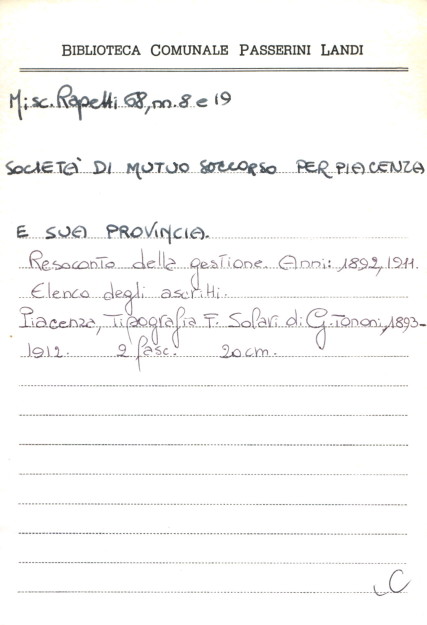 BIBLIOTECA COMUNALE PASSERINI LANDI
Misc. Rapetti 68, nn. 8 e 19
SOCIETA' DI MUTUO SOCCORSO PER PIACENZA
E SUA PROVINCIA.
Resoconto della gestione. Anni: 1892, 1911.
Elenco degli ascritti.
Piacenza, Tipografia F. Solari di G. Tononi, 1893-
1912. 2 fasc. 20 cm.
C